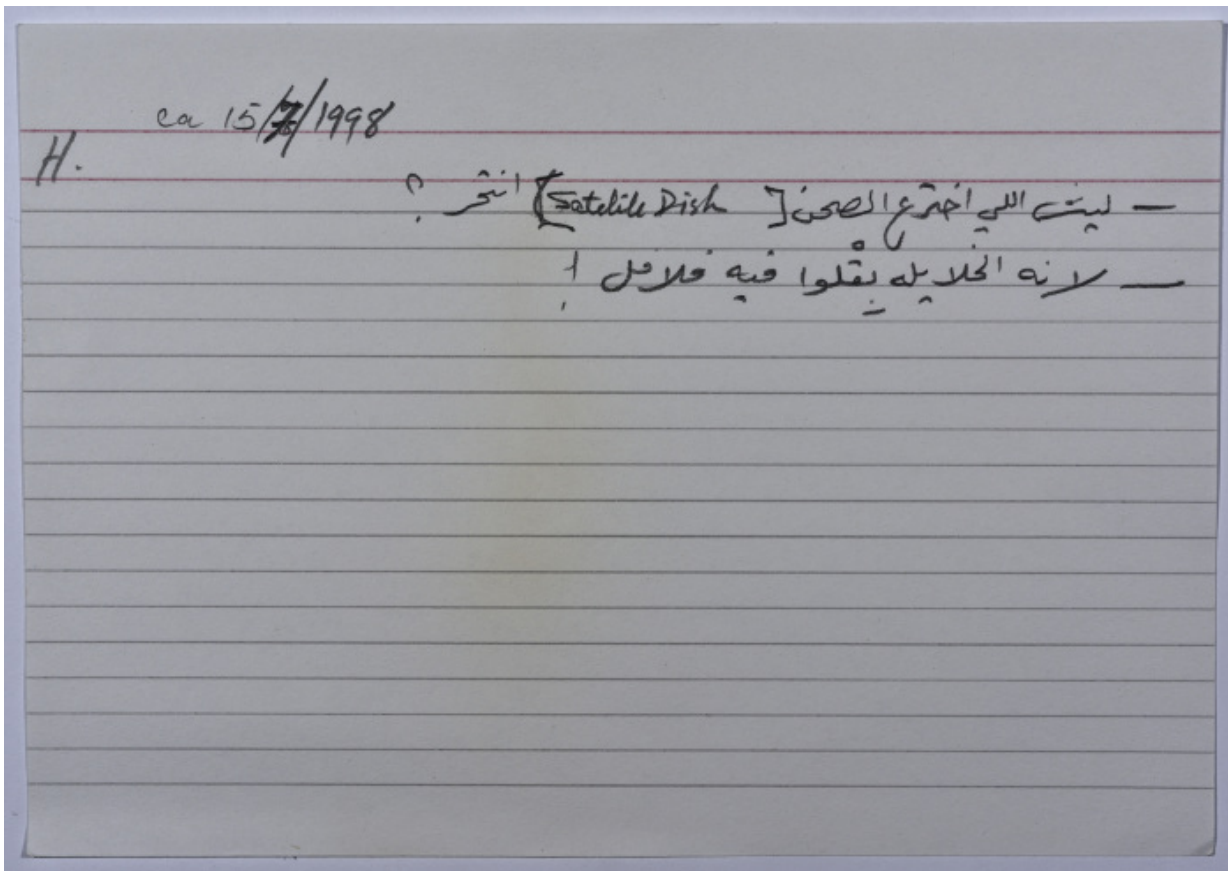 ca 15/7/1998
H.
— ليش اللي اخترع الصحن [Satelile Dish] انتحر ؟
— لانه الخلايله بِقْلوا فيه فلافل !